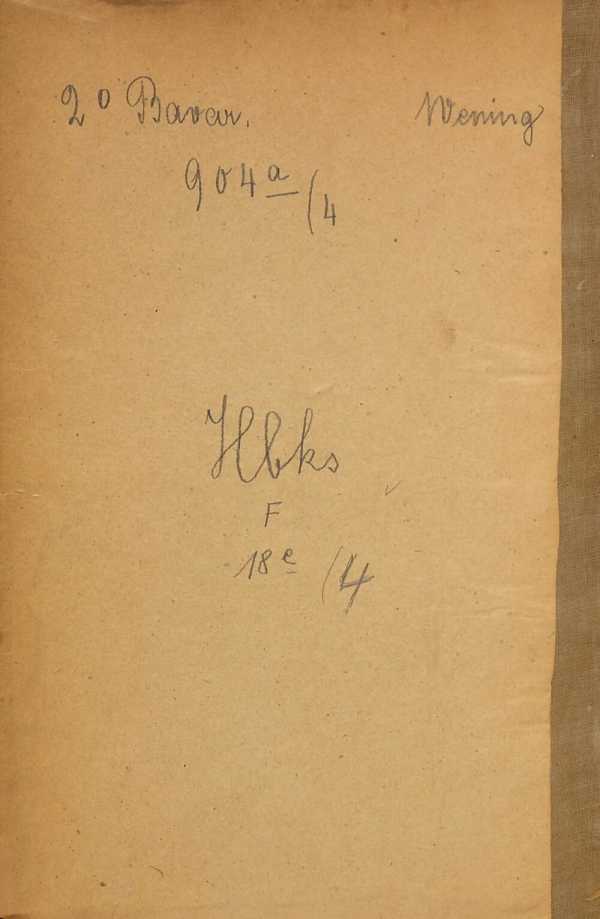 2° Bavar. Wening
904a (4
Hbks
F
18e (4